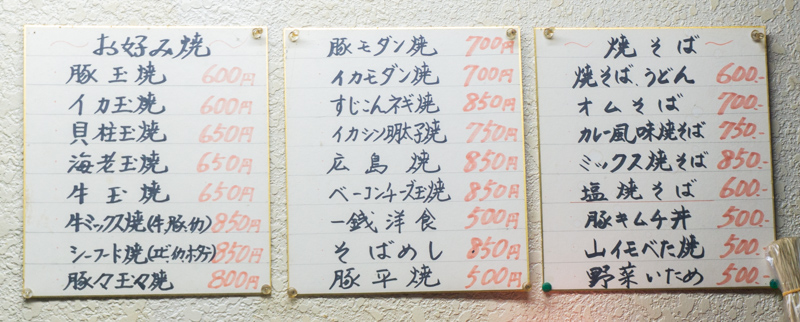 お好み焼
豚玉焼 600円
イカ玉焼 600円
貝柱玉焼 650円
海老玉焼 650円
牛玉焼 650円
牛ミックス焼(牛,豚,イカ) 850円
シーフード焼(エビ,イカ,ホタテ) 850円
豚々玉々焼 800円
豚モダン焼 700円
イカモダン焼 700円
すじこんネギ焼 850円
イカシソ明太子焼 750円
広島焼 850円
ベーコンチーズ玉焼 850円
一銭洋食 500円
そばめし 850円
豚平焼 500円
～焼そば～
焼そば、うどん 600.-
オムそば 700.-
カレー風味焼そば 750.-
ミックス焼そば 850.-
塩焼そば 600.-
豚キムチ丼 500.-
山イモべた焼 500.-
野菜いため 500.-